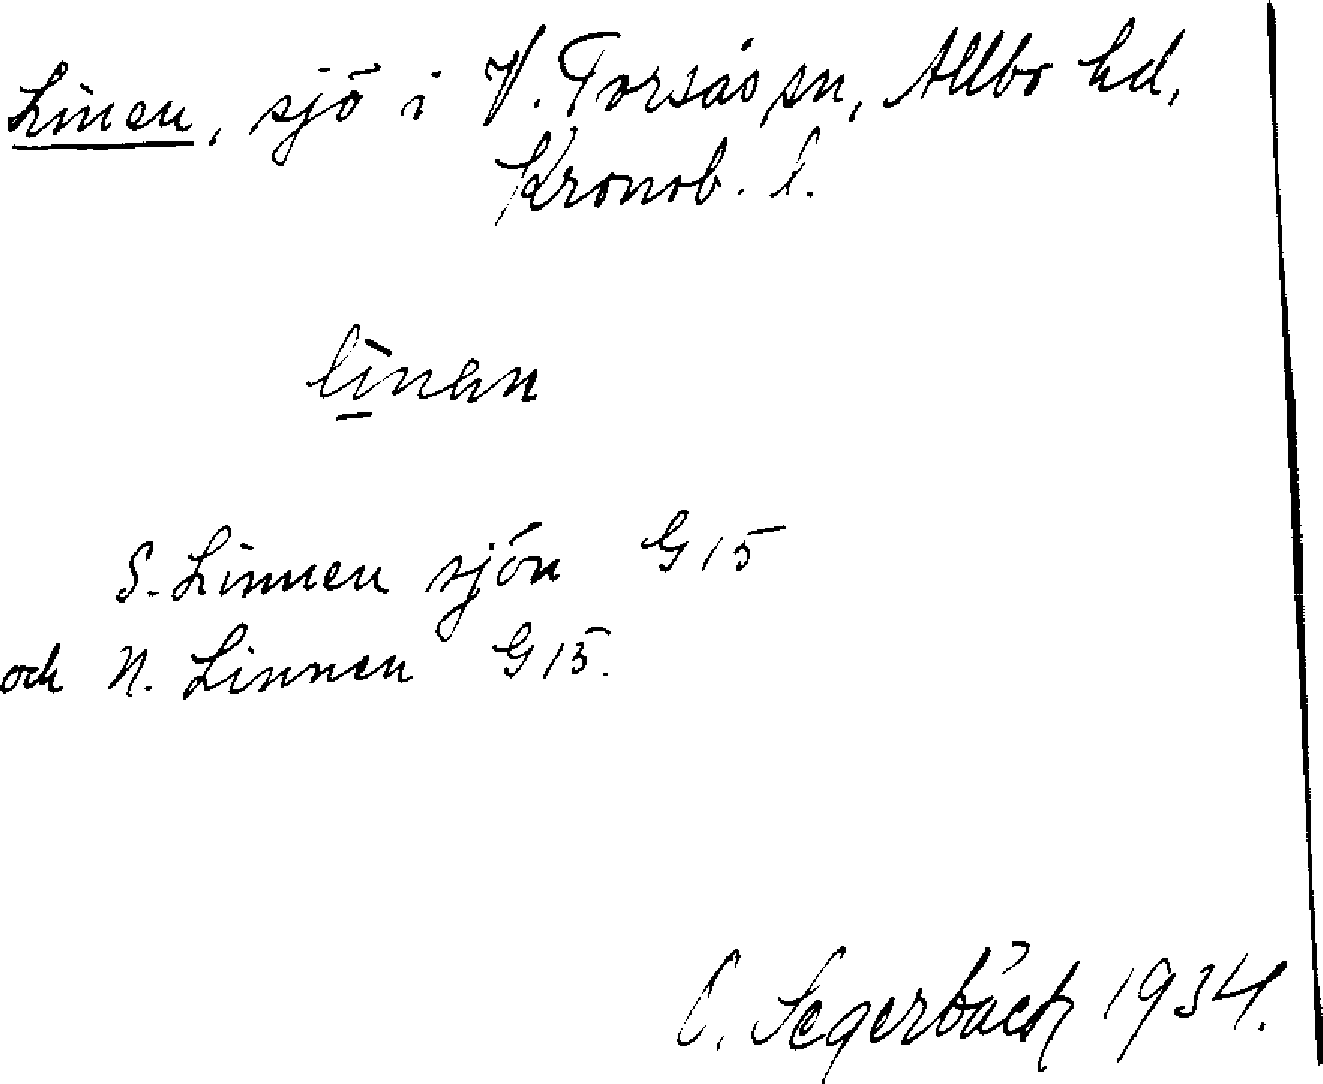 Linen, sjö i V. Torsås sn, Allbo hd,
Kronob. l.
S. Linnen sjön G15
och N. Linnen G15.
C. Segerbäck 1934.